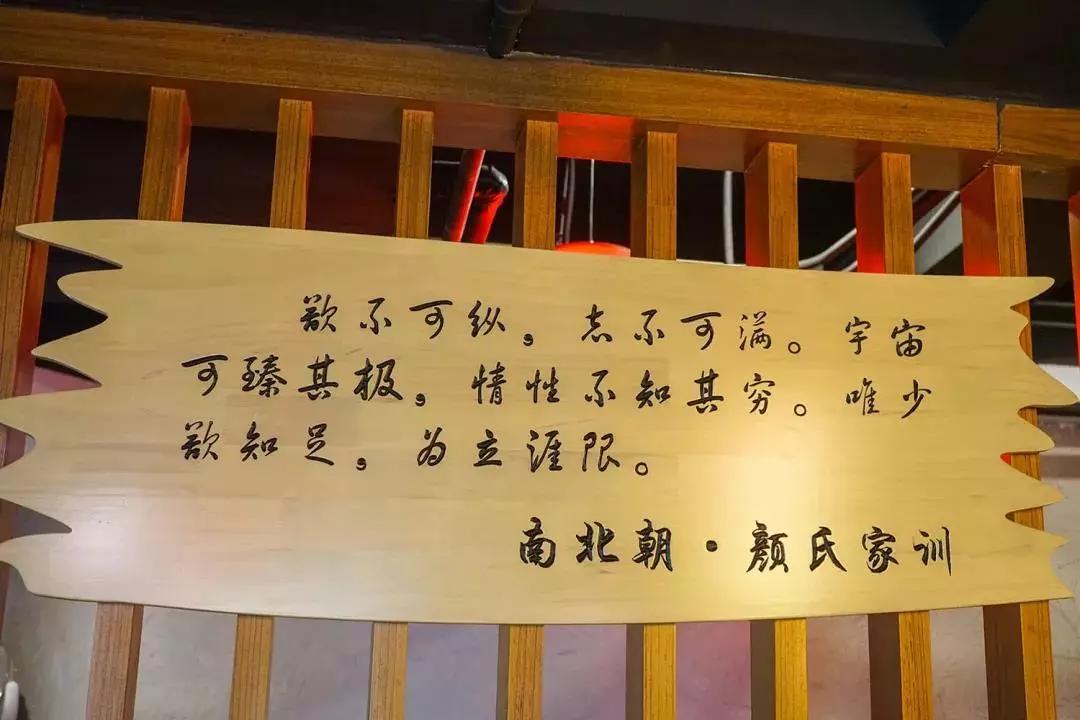 欲不可纵，志不可满。宇宙
可臻其极，情性不知其穷。唯少
欲知足，为立涯限。
南北朝·颜氏家训